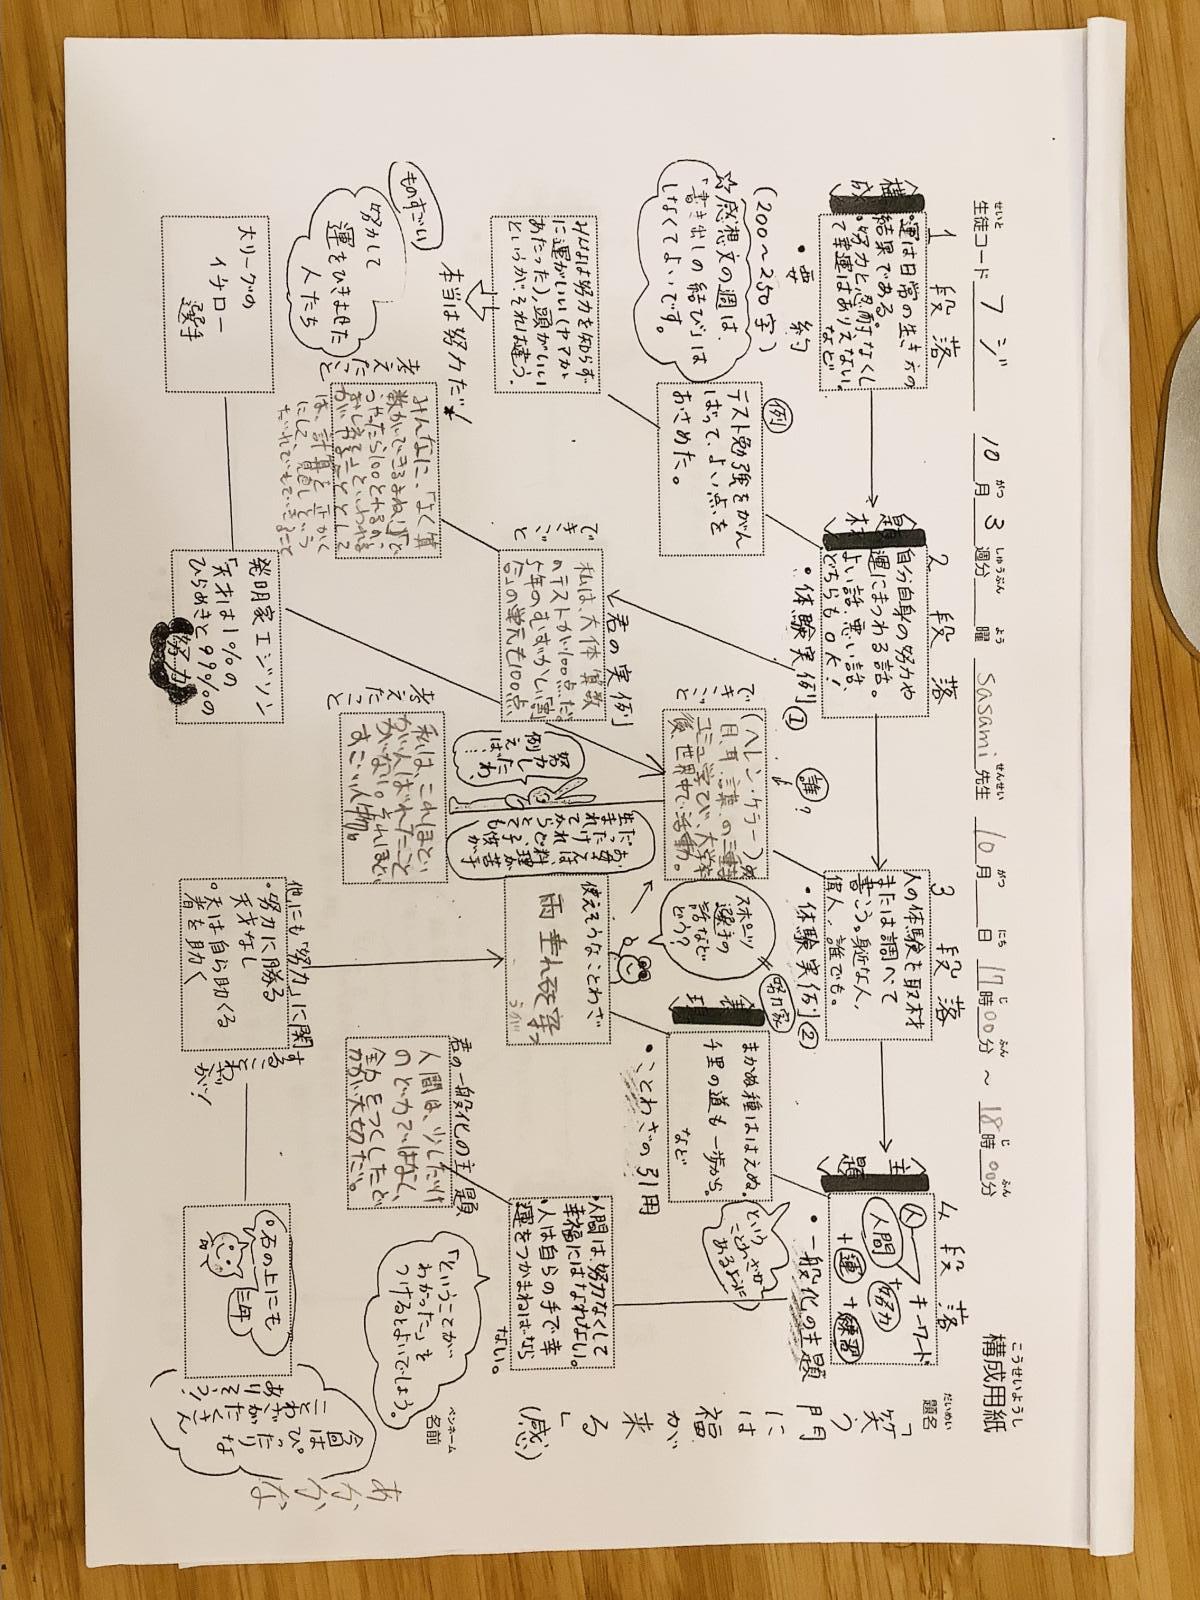 構成用紙
こうせいようし
せいと
生徒コード フジ
10月 3週分 曜 sasami 先生 10月 日 17時00分 ~ 18時00分
題名
だいめい
「笑う門には福が来る」(感)
ペンネーム
名前
あかかな
1段落
〈構成〉
・運は日常の生き方の
結果である。
・努力と忍耐なくし
て幸運はありえない。
など
・要約
(200~250字)
☆感想文の週は、
「書き出しの結び」は
しなくてよいです。
例
テスト勉強をがん
ばって、よい点を
おさめた。
みんなは努力を知らず
に運がいい(ヤマが
あたった)、頭がいい
というが、それは違う。
本当は努力だ!
ものすごい
努力して
運をひきよせた
人たち
大リーグの
イチロー
選手
2段落
〈題材〉
自分自身の努力や
運にまつわる話。
よい話、悪い話、
どちらもOK!
・体験実例①
君の実例
できごと
私は、大体算数
のテストが100点だ。
5年のむずかしい割
合の単元も100点
考えたこと
みんなに、「よく算
数ができるまね。」「どう
やったら100とれるの
おしえて」といわれる
は、計算を正かく
にして、見直しという
だれでもできること
発明家エジソン
「天才は1%の
ひらめきと99%の
努力」
3段落
人の体験を取材
または調べて
書こう。身近な人、
偉人、誰でも。
・体験実例②
誰?
努力家
できごと
(ヘレン・ケラー)は
目、耳、言葉の三重
考えたこと
私は、これほどい
がんばれたこと
がない。それほどい
すごい人物。
努力し
たわ、
例えば…
お母さんは、料理が苦手
スポーツ
選手の
話など
どう?
使えそうなことわざ
雨垂れ石を穿つ
うが
他にも「努力」に関
することわざが!
・努力に勝る
天才なし
・天は自ら助くる
者を助く
まかぬ種ははえぬ。
千里の道も一歩から。
など
・ことわざの引用
(という
ことわざが
あるように)
4段落
〈主題〉
キーワード
人間
+努力
+運+練習
・一般化の主題
・人間は、努力なくして
幸福にはなれない。
・人は自らの手で幸
運をつかまねばなら
ない。
君の一般化の主題
人間は、少しだけ
のどりょくではなく、
全力をつくしたどりょく
が大切だ。
「ということが
わかった」を
つけるとよいでしょう。
石の上にも
三年
今回は
ぴったりな
ことわざがたくさん
ありそう!